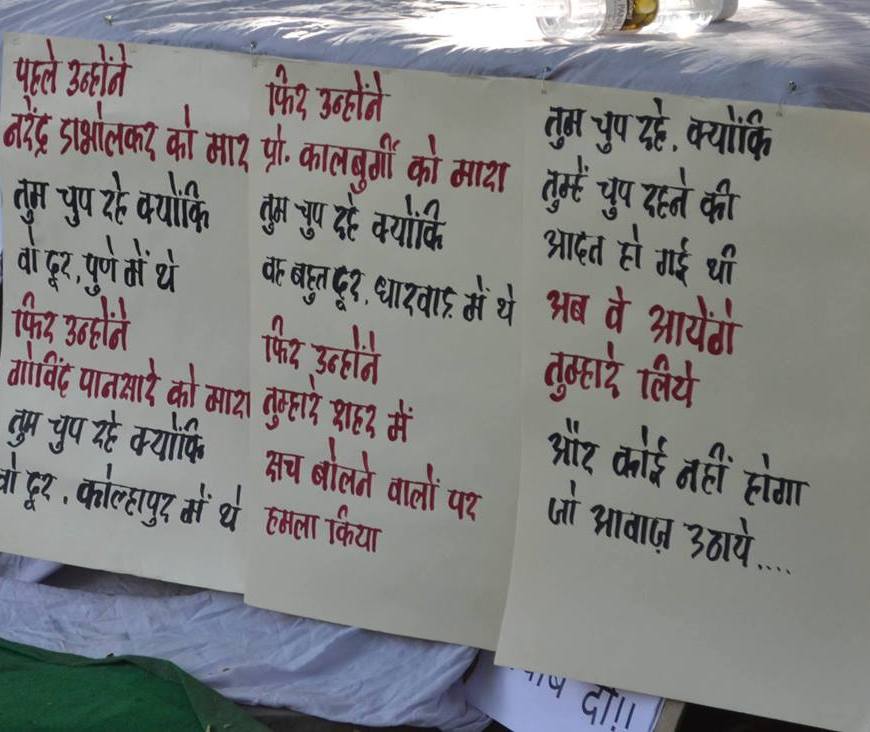 पहले उन्होंने
नरेंद्र डाभोलकर को मार
तुम चुप रहे क्योंकि
वो दूर, पुणे में थे
फिर उन्होंने
गोविंद पानसारे को मारा
तुम चुप रहे क्योंकि
वो दूर, कोल्हापुर में थे
फिर उन्होंने
प्रो. कालबुर्गी को मारा
तुम चुप रहे क्योंकि
वह बहुत दूर, धारवाड़ में थे
फिर उन्होंने
तुम्हारे शहर में
सच बोलने वालों पर
हमला किया
तुम चुप रहे, क्योंकि
तुम्हें चुप रहने की
आदत हो गई थी
अब वे आयेंगे
तुम्हारे लिये
और कोई नहीं होगा
जो आवाज़ उठाये....
दो!!